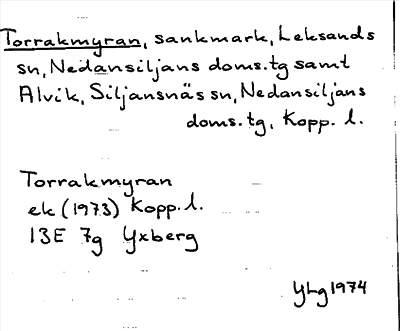 Torrakmyran, sankmark, Leksands
sn, Nedansiljans doms.tg samt
Alvik, Siljansnäs sn, Nedansiljans
doms.tg, Kopp. l.
Torrakmyran
ek (1973) Kopp. l.
13E 7g Yxberg
YLg 1974